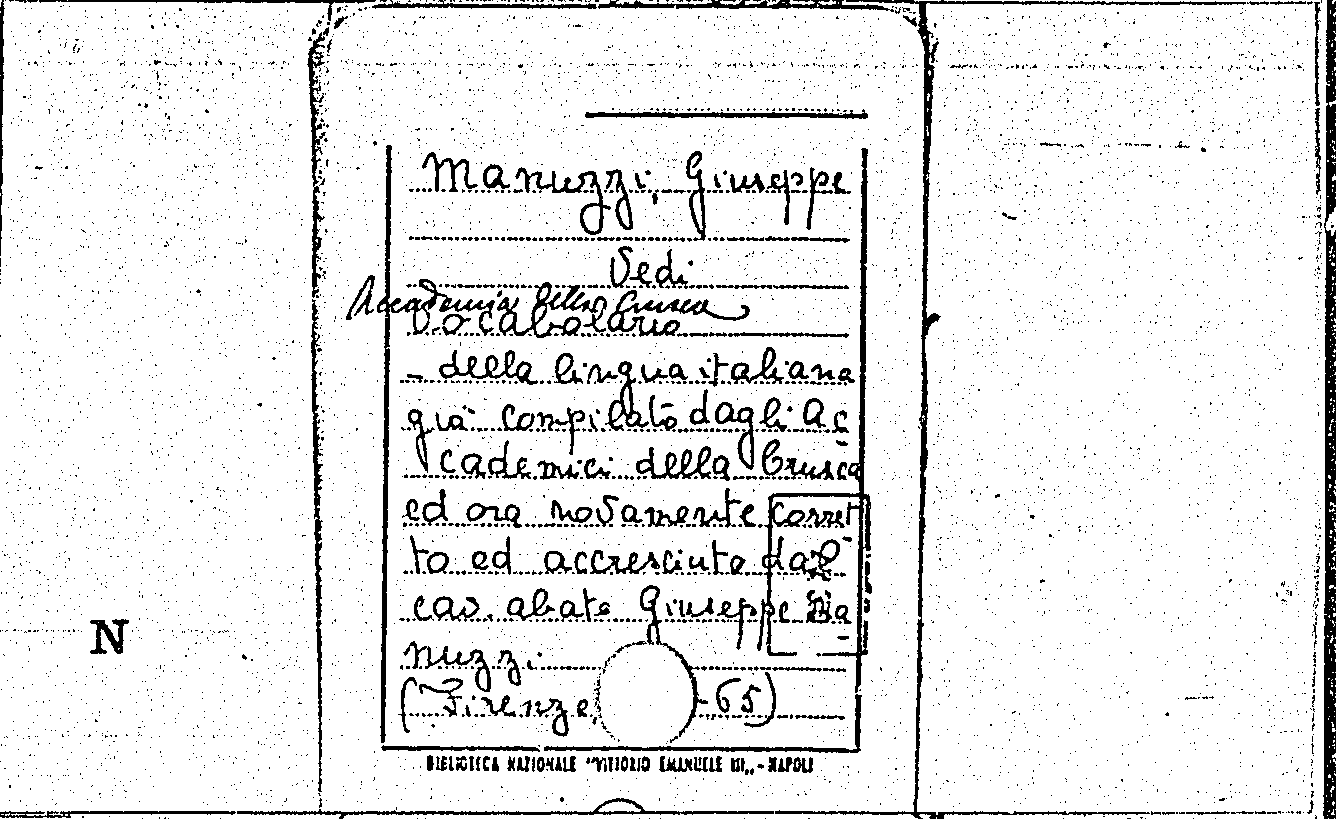 Manuzzi, Giuseppe
Vedi
Accademia della Crusca
Vocabolario
- della lingua italiana
già compilato dagli Ac
cademici della Crusca
ed ora novamente corret
to ed accresciuto dal
cav. abate Giuseppe Ma
nuzzi
(Firenze, -65)
BIBLIOTECA NAZIONALE "VITTORIO EMANUELE III„ - NAPOLI
N